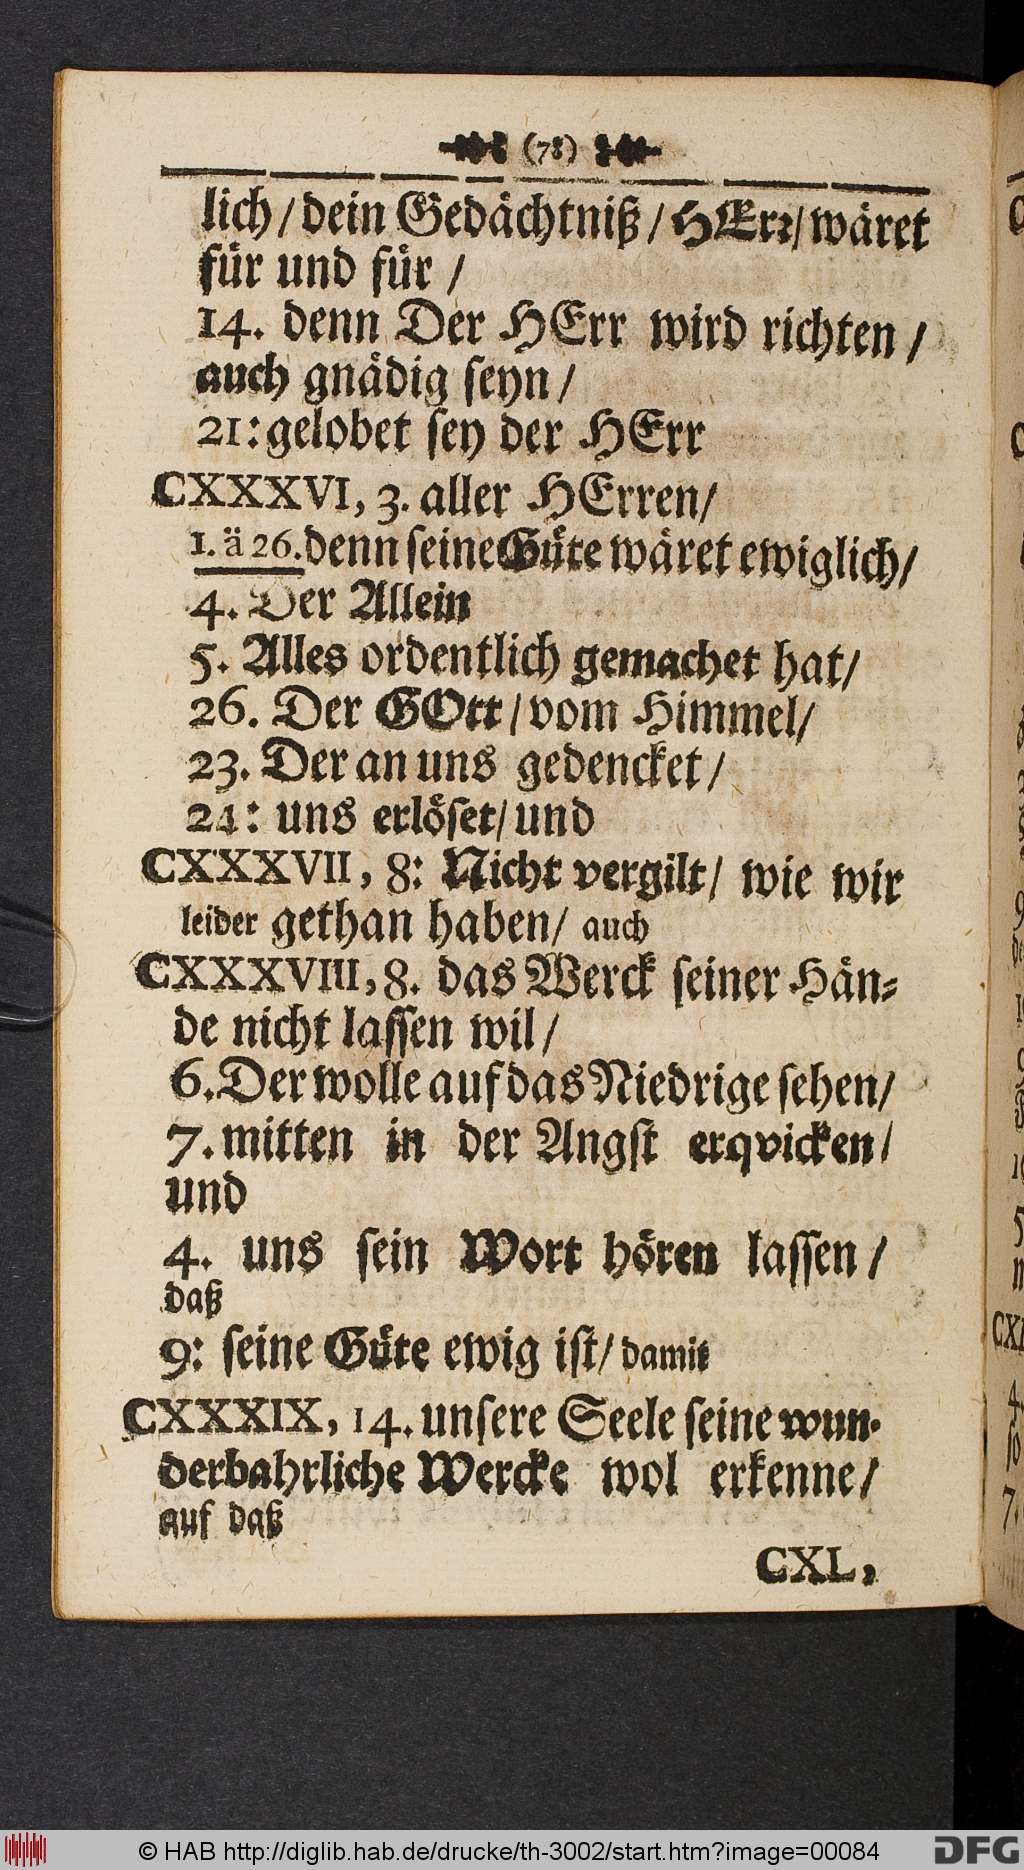 (78)
lich / dein Gedächtniß / HErr / wäret
für und für /
14. denn Der HErr wird richten /
auch gnädig seyn /
21: gelobet sey der HErr
CXXXVI, 3. aller HErren /
1. ä 26. denn seine Güte wäret ewiglich /
4. Der Allein
5. Alles ordentlich gemachet hat /
26. Der GOtt / vom Himmel /
23. Der an uns gedencket /
24: uns erlöset / und
CXXXVII, 8: Nicht vergilt / wie wir
leider gethan haben / auch
CXXXVIII, 8. das Werck seiner Hän=
de nicht lassen wil /
6. Der wolle auf das Niedrige sehen /
7. mitten in der Angst erqvicken /
und
4. uns sein Wort hören lassen /
daß
9: seine Güte ewig ist / damit
CXXXIX, 14. unsere Seele seine wun=
derbahrliche Wercke wol erkenne /
auf daß
CXL,
© HAB http://diglib.hab.de/drucke/th-3002/start.htm?image=00084
DFG